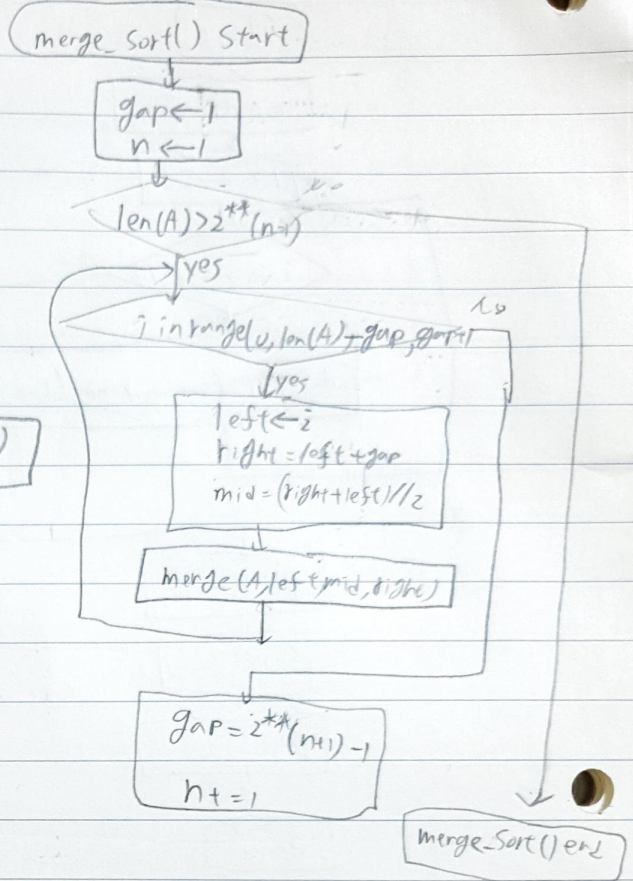 merge_sort() Start
gap←1
n←1
no
len(A)>2**(n-1)
yes
no
i in range(0, len(A)-gap, gap+1)
yes
left←i
right=left+gap
mid=(right+left)//2
)
merge(A,left,mid,right)
gap=2**(n+1)-1
n+=1
merge_sort() end